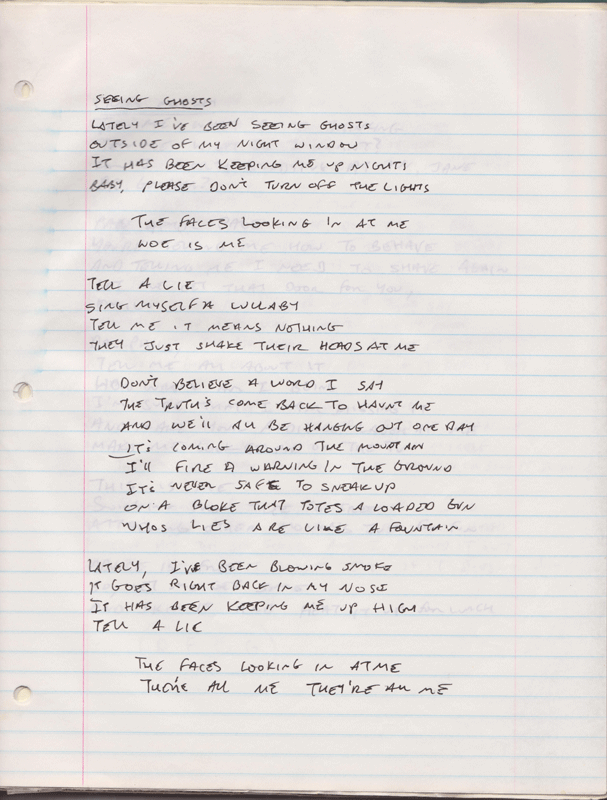 SEEING GHOSTS
LATELY I'VE BEEN SEEING GHOSTS
OUTSIDE OF MY NIGHT WINDOW
IT HAS BEEN KEEPING ME UP NIGHTS
BABY, PLEASE DON'T TURN OFF THE LIGHTS
THE FACES LOOKING IN AT ME
WOE IS ME
TELL A LIE
SING MYSELF A LULLABY
TELL ME IT MEANS NOTHING
THEY JUST SHAKE THEIR HEADS AT ME
DON'T BELIEVE A WORD I SAY
THE TRUTH'S COME BACK TO HAUNT ME
AND WE'LL ALL BE HANGING OUT ONE DAY
IT'S COMING AROUND THE MOUNTAIN
I'LL FIRE A WARNING IN THE GROUND
IT'S NEVER SAFE TO SNEAK UP
ON A BLOKE THAT TOTES A LOADED GUN
WHOS LIES ARE LIKE A FOUNTAIN
LATELY, I'VE BEEN BLOWING SMOKE
IT GOES RIGHT BACK IN MY NOSE
IT HAS BEEN KEEPING ME UP HIGH
TELL A LIE
THE FACES LOOKING IN AT ME
THEY'RE ALL ME THEY'RE ALL ME